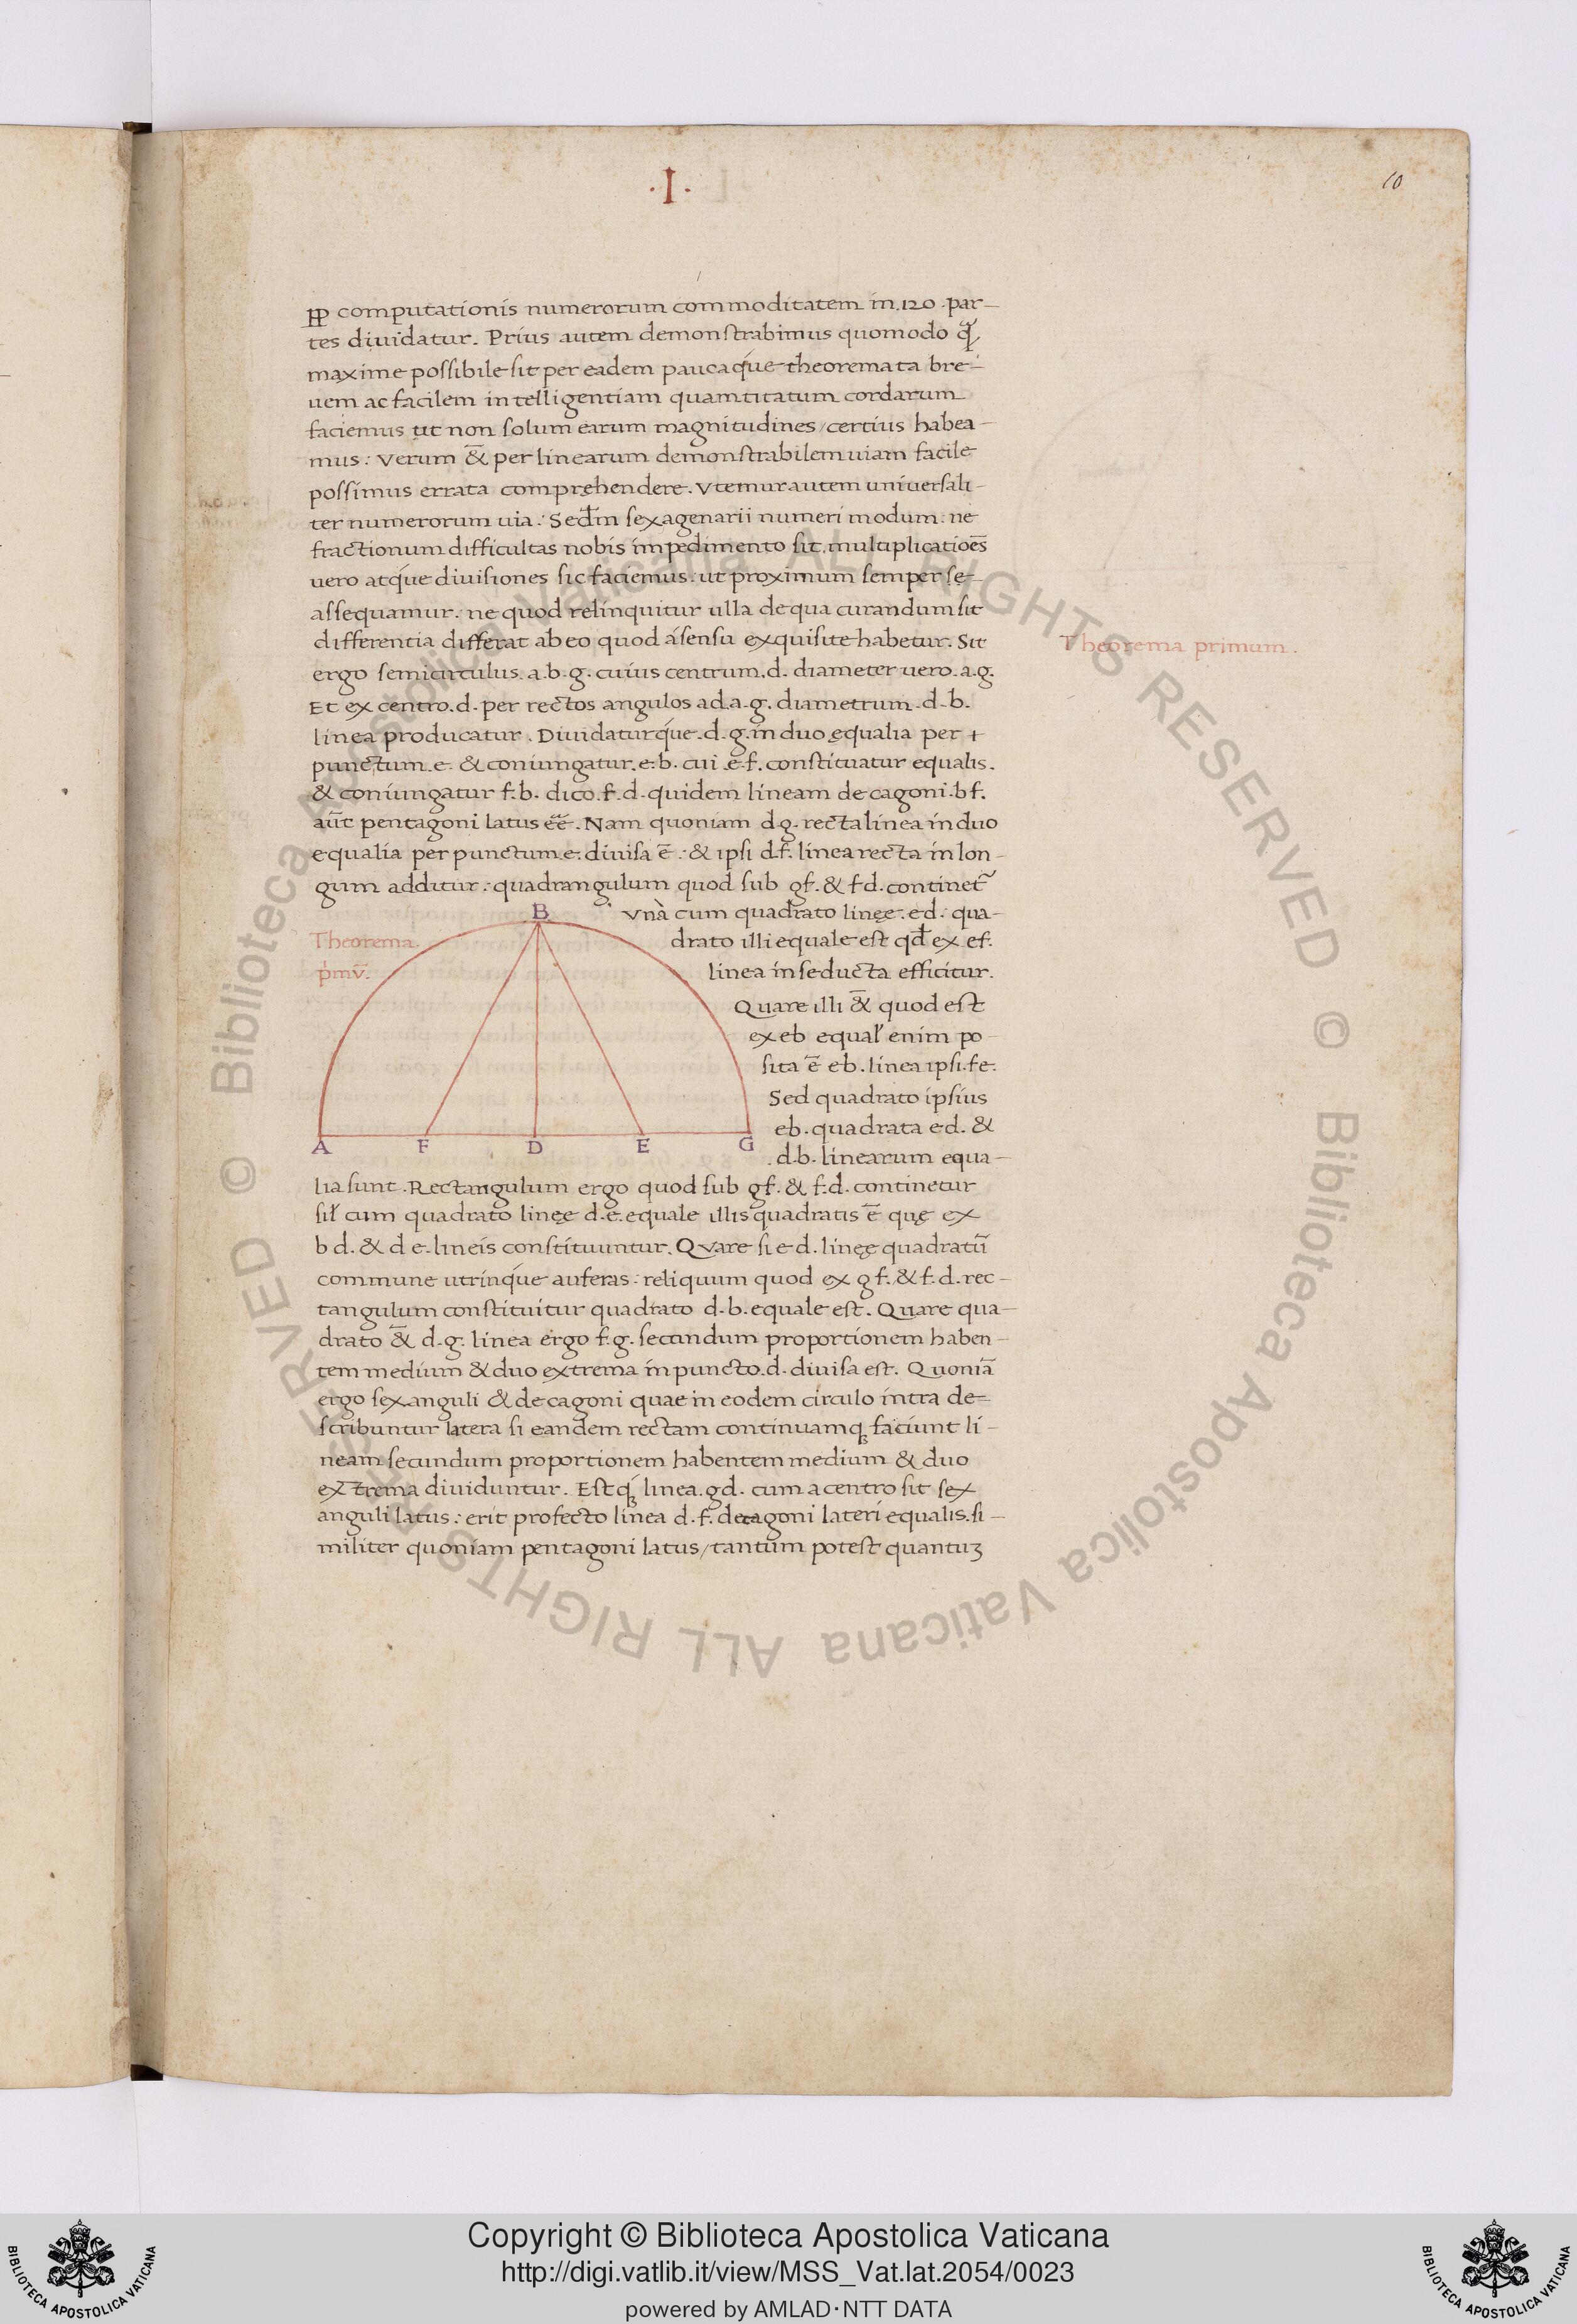 .I.
10
PP computationis numerorum commoditatem in .120. par-
tes diuidatur. Prius autem demonstrabimus quomodo
maxime possibile sit per eadem paucaq́ue theoremata bre-
uem ac facilem intelligentiam quamtitatum cordarum
faciemus ut non solum earum magnitudines/certius habea-
mus: Verum & per linearum demonstrabilem uiam facile
possimus errata comprehendere. Vtemur autem uniuersali-
ter numerorum uia: Secdm sexagenarii numeri modum: ne
fractionum difficultas nobis impedimento sit. multiplicatioēs
uero atq́ue diuisiones sic faciemus: ut proximum semper sę-
assequamur: ne quod relinquitur ulla de qua curandum sit
differentia differat ab eo quod ásensu exquisite habetur. Sit
Theorema primum.
ergo semicirculus .a.b.g. cuius centrum .d. diameter uero .a.g.
Et ex centro .d. per rectos angulos ad .a.g. diametrum .d.b.
linea producatur. Diuidaturq́ue .d.g. in duo ęqualia per +
punctum .e. & coniungatur .e.b. cui .e.f. constituatur equalis.
& coniungatur f.b. dico .f.d. quidem lineam decagoni .b f.
aūt pentagoni latus eē. Nam quoniam d.g. recta linea in duo
equalia per punctum e. diuisa ē: & ipsi d.f. linea recta in lon-
gum additur: quadrangulum quod sub gf. & f d. continet᷑
Vnà cum quadrato linęe .e d. qua-
drato illi equale est qd̄ ex ef.
linea in se ducta efficitur.
Quare illi & quod est
ex e b equal' enim po-
sita ē e b. linea ipsi .f e.
Sed quadrato ipsius
e b. quadrata e d. &
.d.b. linearum equa-
Theorema
p̄mū.
B
A F D E G
lia sunt. Rectangulum ergo quod sub gf. & f.d. continetur
sil' cum quadrato linęe d.e. equale illis quadratis ē quę ex
b d. & d e. lineis constituuntur. Quare si e d. linęe quadratū
commune utrinq́ue auferas: reliquum quod ex g f. & f.d. rec-
tangulum constituitur quadrato d.b. equale est. Quare qua-
drato & d.g. linea ergo f.g. secundum proportionem haben-
tem medium & duo extrema in puncto .d. diuisa est. Quoniā
ergo sexanguli & decagoni quae in eodem circulo intra de=
scribuntur latera si eandem rectam continuamq; faciunt li-
neam secundum proportionem habentem medium & duo
extrema diuiduntur. Estq; linea .gd. cum a centro sit sex
anguli latus: erit profecto linea d.f. decagoni lateri equalis. si-
militer quoniam pentagoni latus/tantum potest quantuʒ
© Biblioteca Apostolica Vaticana ALL RIGHTS RESERVED © Biblioteca Apostolica Vaticana ALL RIGHTS RESERVED
BIBLIOTECA APOSTOLICA VATICANA
Copyright © Biblioteca Apostolica Vaticana
http://digi.vatlib.it/view/MSS_Vat.lat.2054/0023
powered by AMLAD·NTT DATA
BIBLIOTECA APOSTOLICA VATICANA